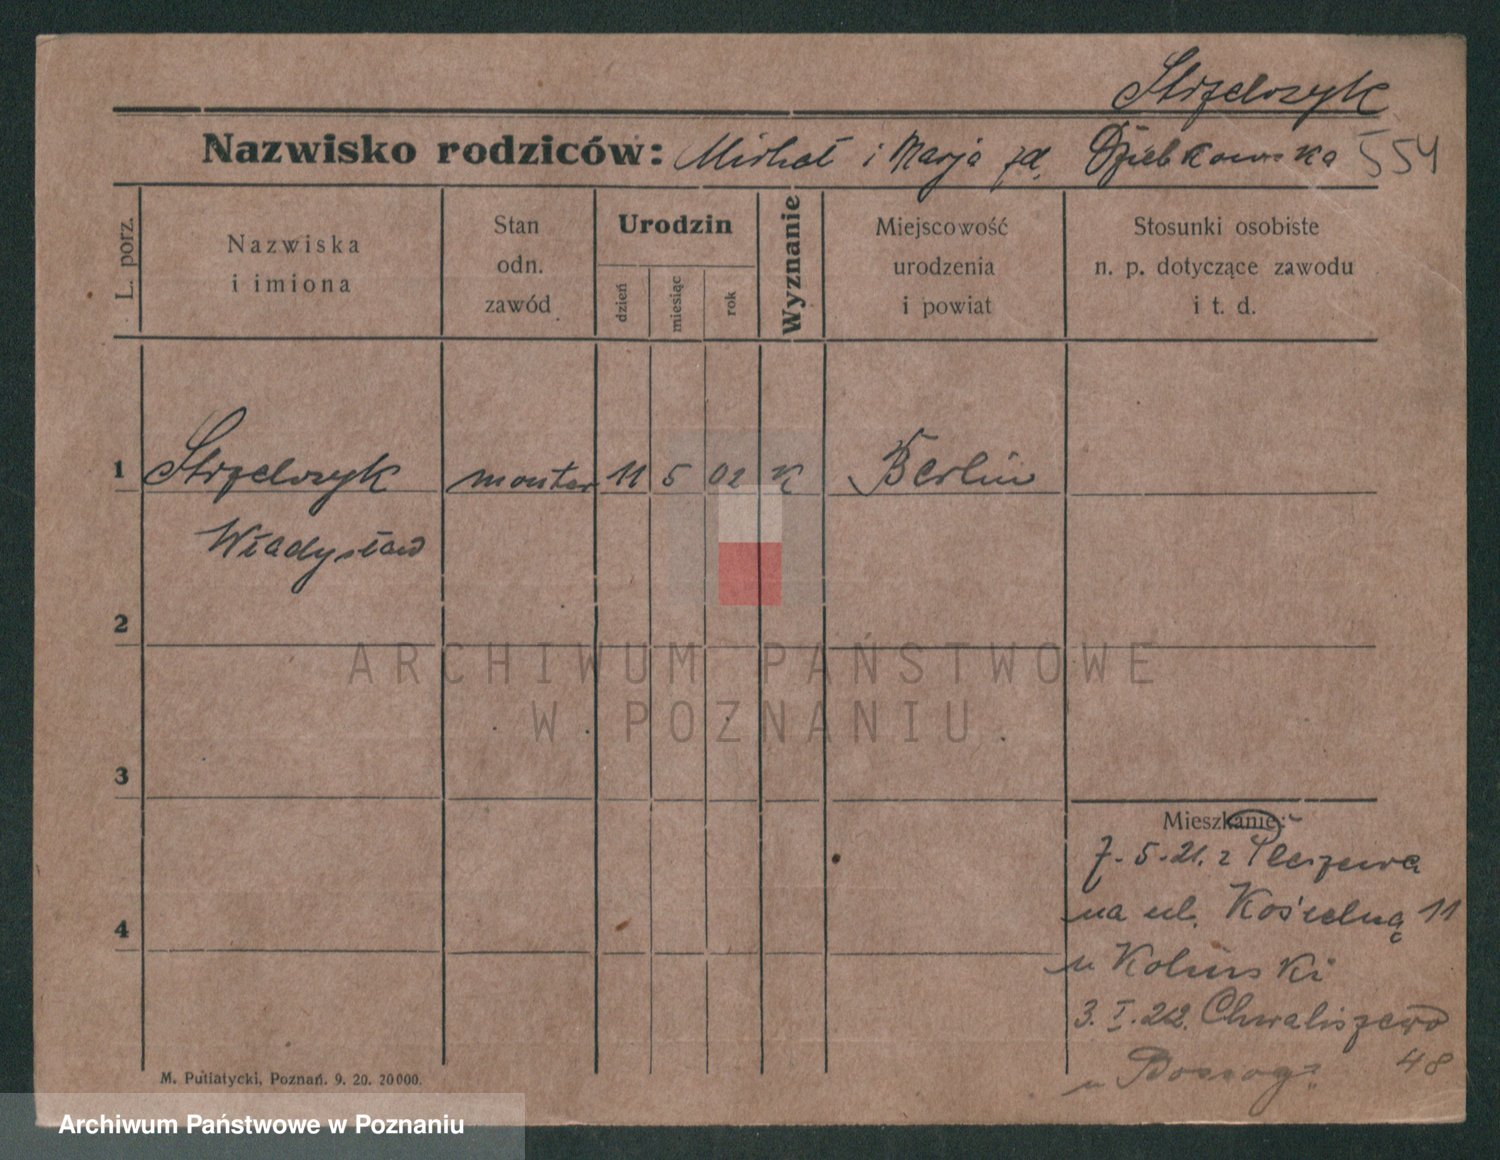 Strzelczyk
Nazwisko rodziców: Michał i Marja zd. Dziebkowska 554
L. porz.
Nazwiska
i imiona
Stan
odn.
zawód
Urodzin
dzień
miesiąc
rok
Wyznanie
Miejscowość
urodzenia
i powiat
Stosunki osobiste
n. p. dotyczące zawodu
i t. d.
1 Strzelczyk monter 11 5 02 K Berlin
Władysław
2
ARCHIWUM PAŃSTWOWE
W POZNANIU
3
Mieszkanie:
7.5.21. z Pleszewa
na ul. Kościelną 11
4
u
3.I.22. Chwaliszewo
48
u
M. Putiatycki, Poznań. 9. 20. 20000.
Archiwum Państwowe w Poznaniu